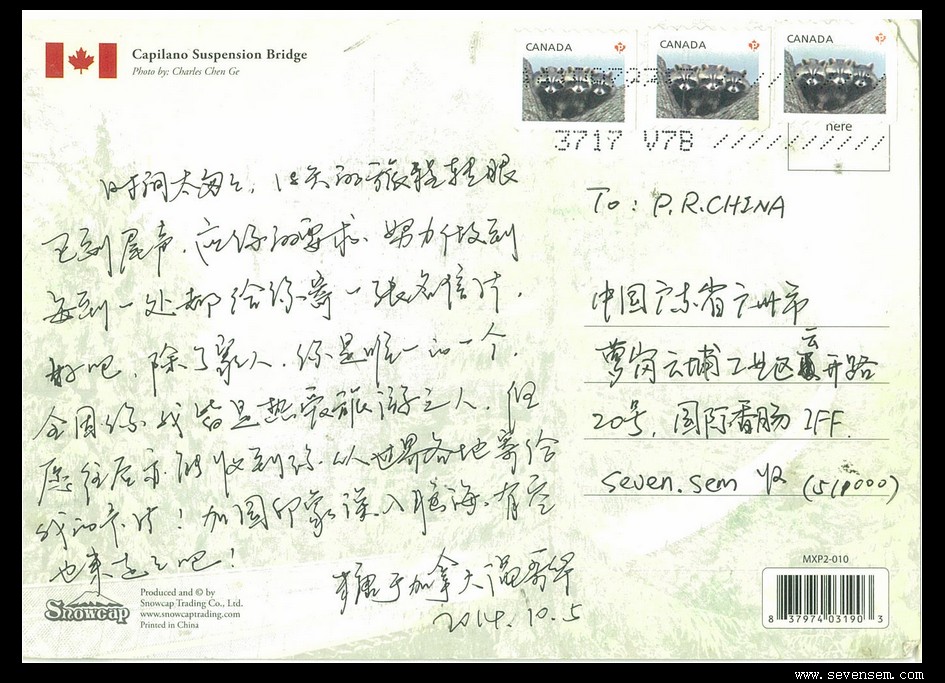 Capilano Suspension Bridge
Photo by: Charles Chen Ge
CANADA P
CANADA P
CANADA P
here
3717 V7B
时间太匆匆，12天的旅程转眼
已到尾声，应你的要求，努力做到
每到一处都给你寄一张名信片，
好吧，除了家人，你是唯一的一个，
全因你我皆是热爱旅游之人，但
愿往后亦能收到你从世界各地寄给
我的卡片！加国印象深入脑海，有空
也来走走吧！
于加拿大温哥华
2014.10.5
To: P.R.CHINA
中国广东省广州市
萝岗云埔工业区云开路
20号，国际香肠 IFF.
seven.sem 收 (510000)
Snowcap
Produced and © by
Snowcap Trading Co., Ltd.
www.snowcaptrading.com
Printed in China
MXP2-010
8 37974 03190 3
www.sevensem.com